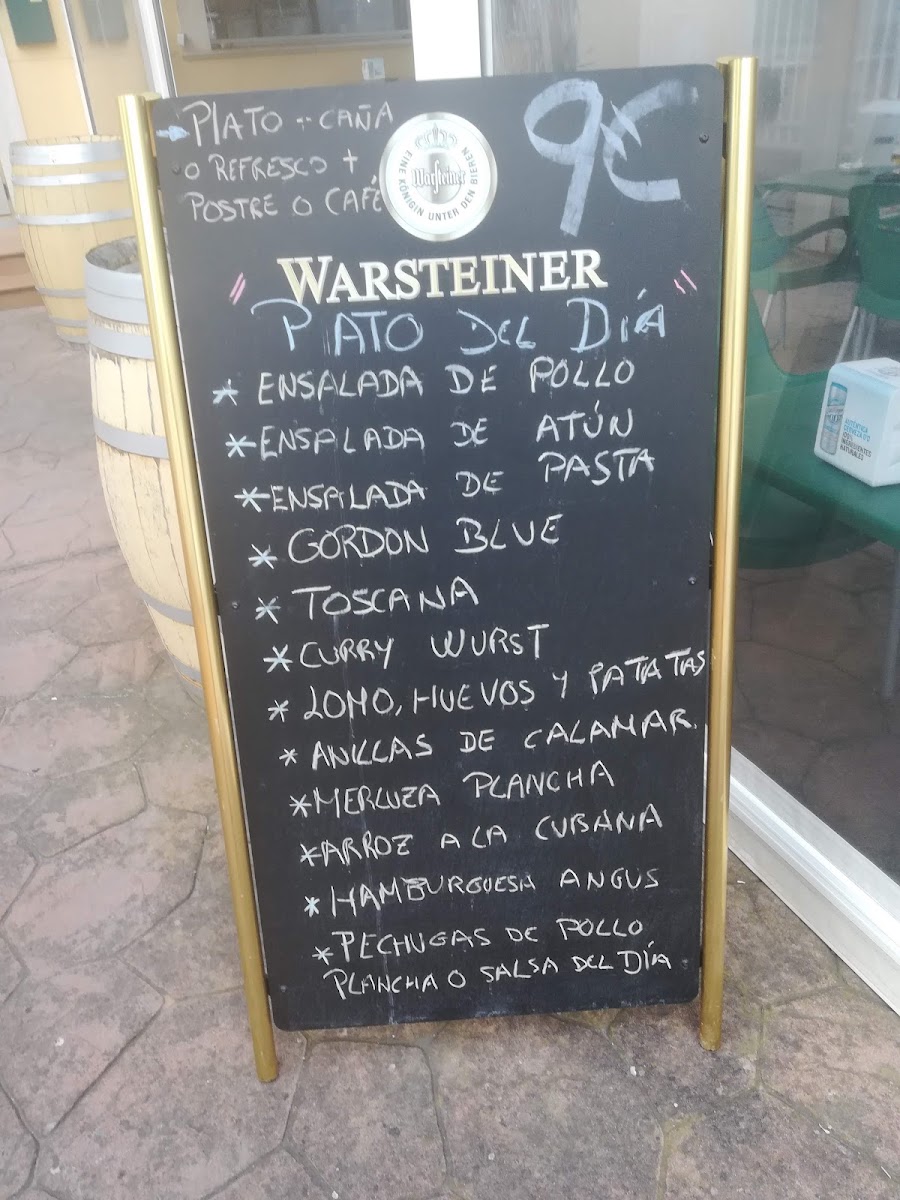 PLATO + CAÑA
O REFRESCO +
POSTRE O CAFÉ
9€
EINE KÖNIGIN UNTER DEN BIEREN
Warsteiner
WARSTEINER
" PLATO DEL DÍA "
* ENSALADA DE POLLO
* ENSALADA DE ATÚN
* ENSALADA DE PASTA
* GORDON BLUE
* TOSCANA
* CURRY WURST
* LOMO, HUEVOS Y PATATAS
* ANILLAS DE CALAMAR.
* MERLUZA PLANCHA
* ARROZ A LA CUBANA
* HAMBURGUESA ANGUS
* PECHUGAS DE POLLO
PLANCHA O SALSA DEL DÍA
AUTÉNTICA
CERVEZA 0'0
100%
INGREDIENTES
NATURALES